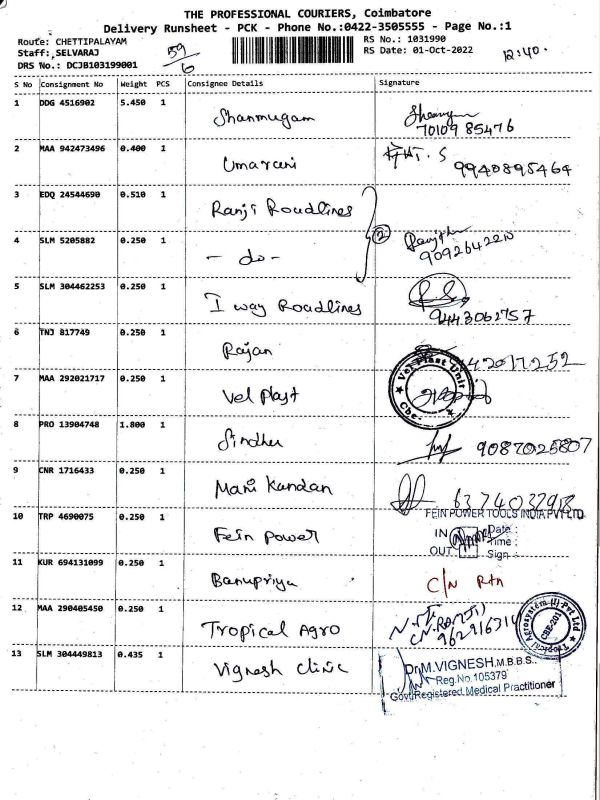 THE PROFESSIONAL COURIERS, Coimbatore
Delivery Runsheet - PCK - Phone No.:0422-3505555 - Page No.:1
Route: CHETTIPALAYAM 59/6 RS No.: 1031990
Staff: SELVARAJ RS Date: 01-Oct-2022 12:40.
DRS No.: DCJB103199001
S No Consignment No Weight PCS Consignee Details Signature
1 DDG 4516902 5.450 1 Shanmugam
70109 85476
2 MAA 942473496 0.400 1 Umarani
9940895464
3 EDQ 24544690 0.510 1 Ranji Roadlines
4 SLM 5205882 0.250 1 - do - 2
9092642210
5 SLM 304462253 0.250 1 I way Roadlines
9443062757
6 TNJ 817749 0.250 1 Rajan
7 MAA 292021717 0.250 1 Vel Plast
Vel Plast Unit
Cbe-
8 PRO 13904748 1.800 1 Sindhu 9087025807
9 CNR 1716433 0.250 1 Mani Kandan
10 TRP 4690075 0.250 1 Fein power
FEIN POWER TOOLS INDIA PVT LTD
IN Date :
OUT Time :
Sign
11 KUR 694131099 0.250 1 Banupriya C/N Rtn
12 MAA 290405450 0.250 1 Tropical Agro
Tropical Agrosystem (I) Pvt Ltd
CBE-201
13 SLM 304449813 0.435 1 Vignesh clinic
Dr.M.VIGNESH,M.B.B.S.,
Reg.No.105379
Govt Registered Medical Practitioner